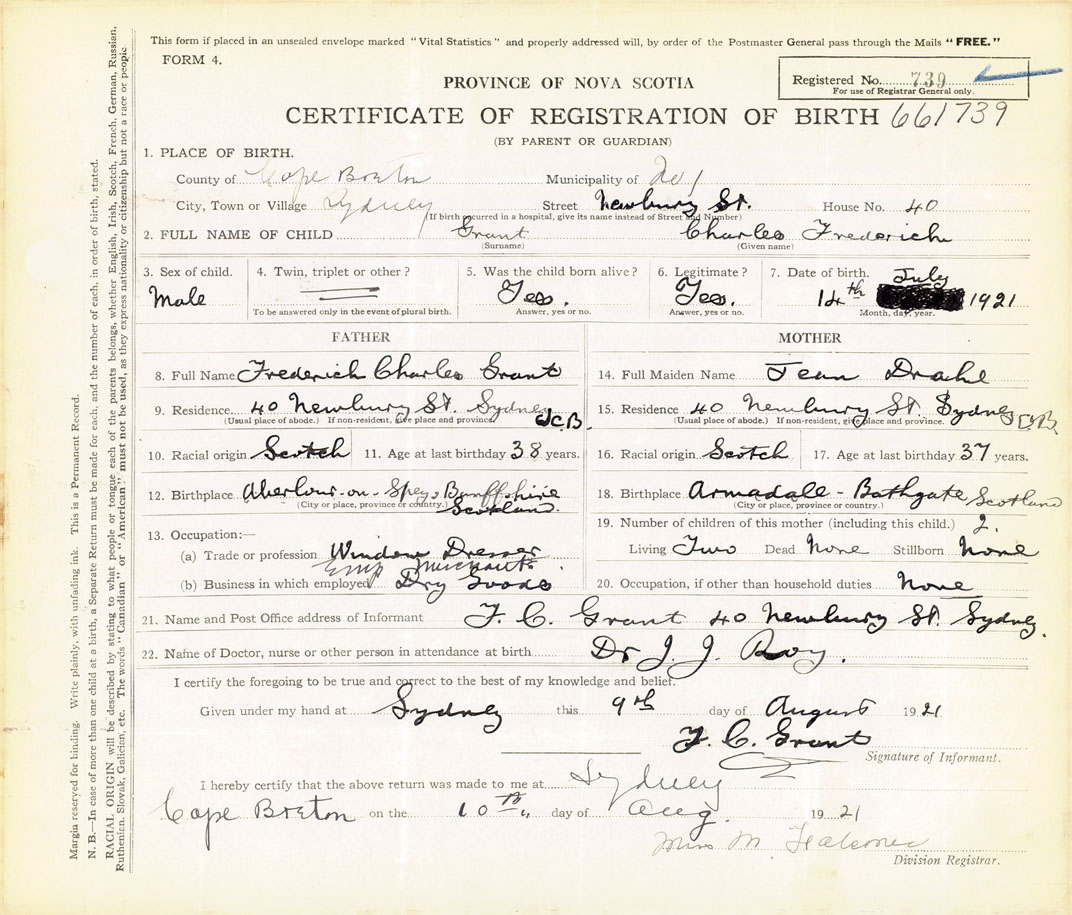 This form if placed in an unsealed envelope marked "Vital Statistics" and properly addressed will, by order of the Postmaster General pass through the Mails "FREE."
FORM 4.
Registered No. 739
For use of Registrar General only.
PROVINCE OF NOVA SCOTIA
CERTIFICATE OF REGISTRATION OF BIRTH 661739
(BY PARENT OR GUARDIAN)
1. PLACE OF BIRTH.
County of Cape Breton Municipality of
City, Town or Village Sydney Street Newbury St. House No. 40
(If birth occurred in a hospital, give its name instead of Street and Number)
2. FULL NAME OF CHILD Grant Charles Frederick
(Surname) (Given name)
3. Sex of child. 4. Twin, triplet or other? 5. Was the child born alive? 6. Legitimate? 7. Date of birth. July
Male Yes. Yes. 14th 1921
To be answered only in the event of plural birth. Answer, yes or no. Answer, yes or no. Month, day, year.
FATHER
8. Full Name Frederick Charles Grant
9. Residence 40 Newbury St. Sydney C.B.
(Usual place of abode.) If non-resident, give place and province
10. Racial origin Scotch 11. Age at last birthday 38 years.
12. Birthplace Aberlour-on-Spey, Banffshire
(City or place, province or country.) Scotland.
13. Occupation:—
(a) Trade or profession Window Dresser
Emp Merchants
(b) Business in which employed Dry Goods
MOTHER
14. Full Maiden Name Jean Drake
15. Residence 40 Newbury St. Sydney C.B.
(Usual place of abode.) If non-resident, give place and province.
16. Racial origin Scotch 17. Age at last birthday 37 years.
18. Birthplace Armadale - Bathgate Scotland
(City or place, province or country.)
19. Number of children of this mother (including this child.) 2.
Living Two Dead None Stillborn None
20. Occupation, if other than household duties None
21. Name and Post Office address of Informant F. C. Grant 40 Newbury St. Sydney.
22. Name of Doctor, nurse or other person in attendance at birth Dr J. J. Roy.
I certify the foregoing to be true and correct to the best of my knowledge and belief.
Given under my hand at Sydney this 9th day of August 1921
F. C. Grant
Signature of Informant.
I hereby certify that the above return was made to me at Sydney
Cape Breton on the 10th day of Aug. 1921
Miss M Falconer
Division Registrar.
Margin reserved for binding. Write plainly, with unfading ink. This is a Permanent Record.
N. B.—In case of more than one child at a birth, a Separate Return must be made for each, and the number of each, in order of birth, stated.
RACIAL ORIGIN will be described by stating to what people or tongue each of the parents belongs, whether English, Irish, Scotch, French, German, Russian,
Ruthenian, Slovak, Galician, etc. The words "Canadian" or "American" must not be used, as they express nationality or citizenship but not a race or people.